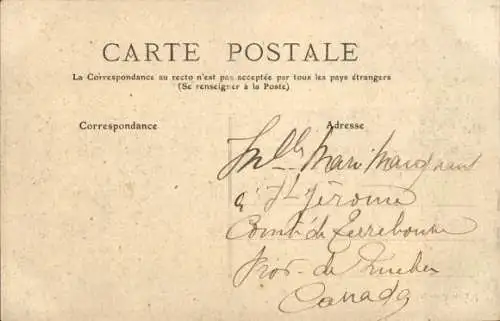 CARTE POSTALE
La Correspondance au recto n'est pas acceptée par tous les pays étrangers
(Se renseigner à la Poste)
Correspondance
Adresse
Mlle Marie
à St Jérome
Comté de Terrebonne
Prov. de Quebec
Canada